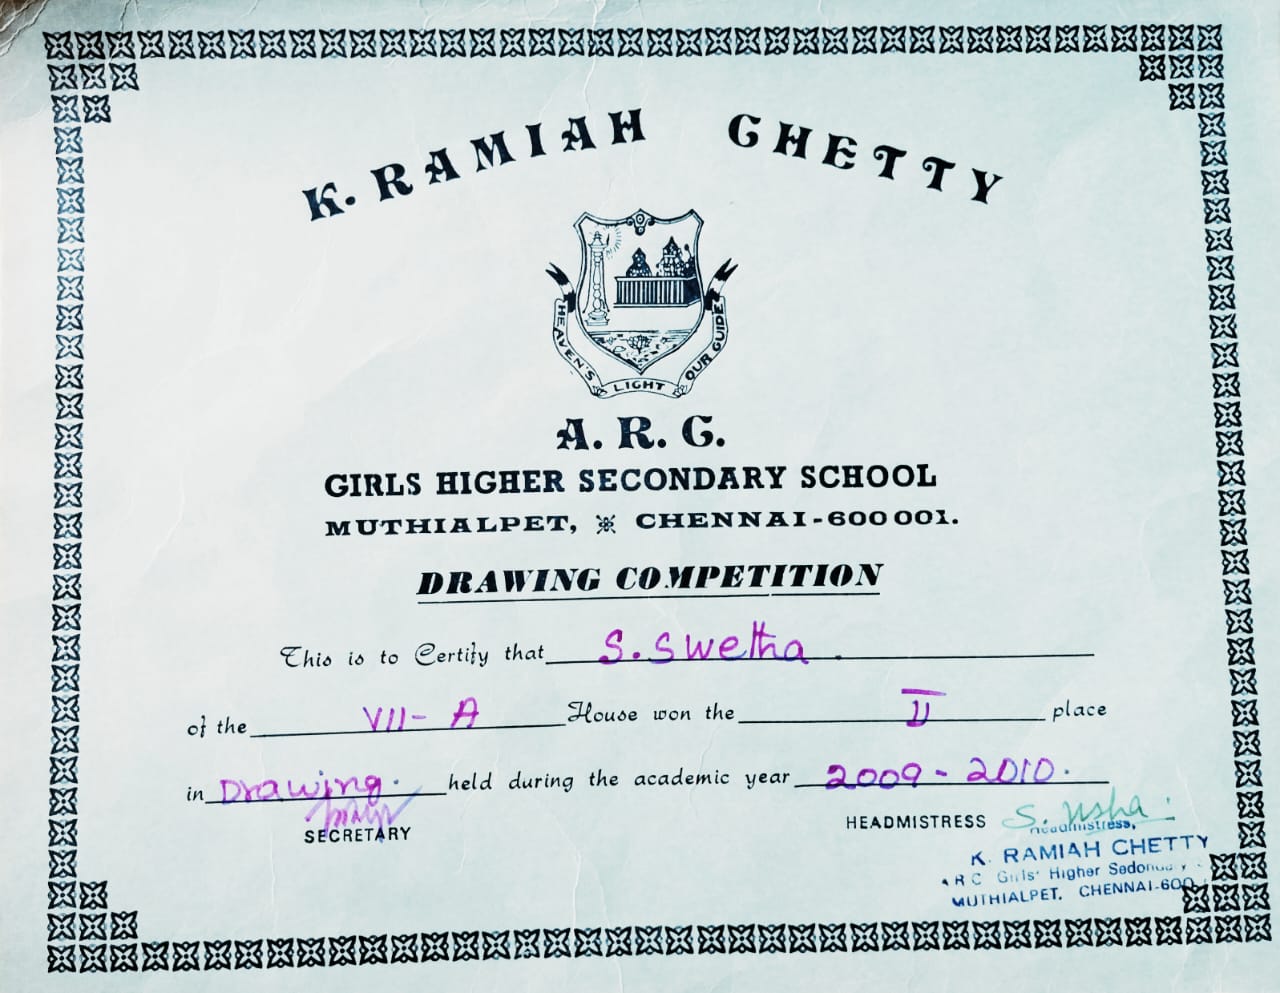 K. RAMIAH CHETTY
HEAVEN'S LIGHT OUR GUIDE
A. R. C.
GIRLS HIGHER SECONDARY SCHOOL
MUTHIALPET, CHENNAI-600 001.
DRAWING COMPETITION
This is to Certify that S. Swetha.
of the VII - A House won the II place
in Drawing. held during the academic year 2009 - 2010.
SECRETARY
HEADMISTRESS S. Usha.
Headmistress,
K. RAMIAH CHETTY
A R C Girls' Higher Sedondary
MUTHIALPET, CHENNAI-600